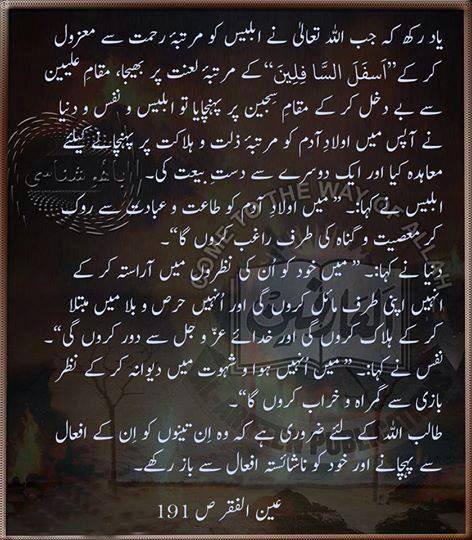 یاد رکھ کہ جب اللہ تعالیٰ نے ابلیس کو مرتبۂ رحمت سے معزول
کر کے ”اَسفَلَ السَّا فِلِینَ“ کے مرتبۂ لعنت پر بھیجا، مقامِ علیین
سے بے دخل کر کے مقامِ سجین پر پہنچایا تو ابلیس و نفس و دنیا
نے آپس میں اولادِ آدم کو مرتبۂ ذلت و ہلاکت پر پہنچانے کیلئے
معاہدہ کیا اور ایک دوسرے سے دستِ بیعت کی۔
ابلیس نے کہا:۔ ”میں اولادِ آدم کو طاعت و عبادت سے روک
کر معصیت و گناہ کی طرف راغب کروں گا“۔
دنیا نے کہا:۔ ”میں خود کو اُن کی نظروں میں آراستہ کر کے
انہیں اپنی طرف مائل کروں گی اور اُنہیں حرص و بلا میں مبتلا
کر کے ہلاک کروں گی اور خدائے عزّ و جل سے دور کروں گی“۔
نفس نے کہا:۔ ”میں اُنہیں ہوا و شہوت میں دیوانہ کر کے نظر
بازی سے گمراہ و خراب کروں گا“۔
طالب اللہ کے لئے ضروری ہے کہ وہ اِن تینوں کو اِن کے افعال
سے پہچانے اور خود کو ناشائستہ افعال سے باز رکھے۔
عین الفقر ص 191
COME TO THE WAY OF ALLAH